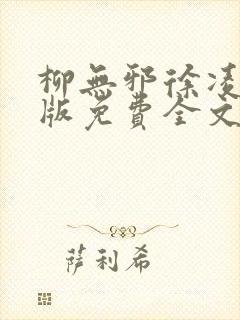 柳無邪徐凌
版免費全文
萨利希